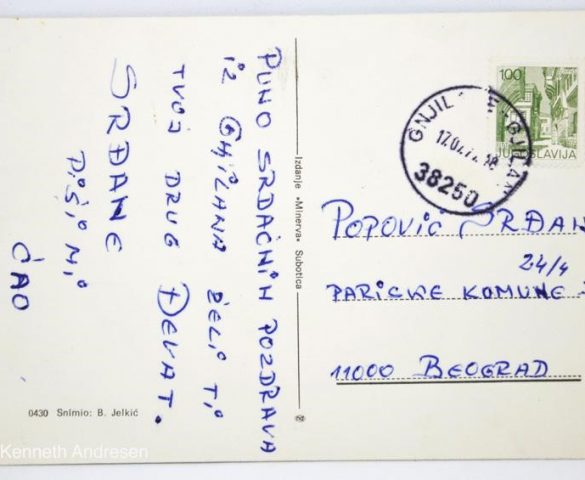 PUNO SRDAČNIH POZDRAVA
IZ GNJILANA ŽELI TI
TVOJ DRUG DEVAT.
SRĐANE
PIŠI MI
ĆAO
0430 Snimio: B. Jelkić
Izdanje »Minerva« Subotica
100
JUGOSLAVIJA
38250
POPOVIĆ SRĐAN
24/4
PARISKE KOMUNE
11000 BEOGRAD
Kenneth Andresen